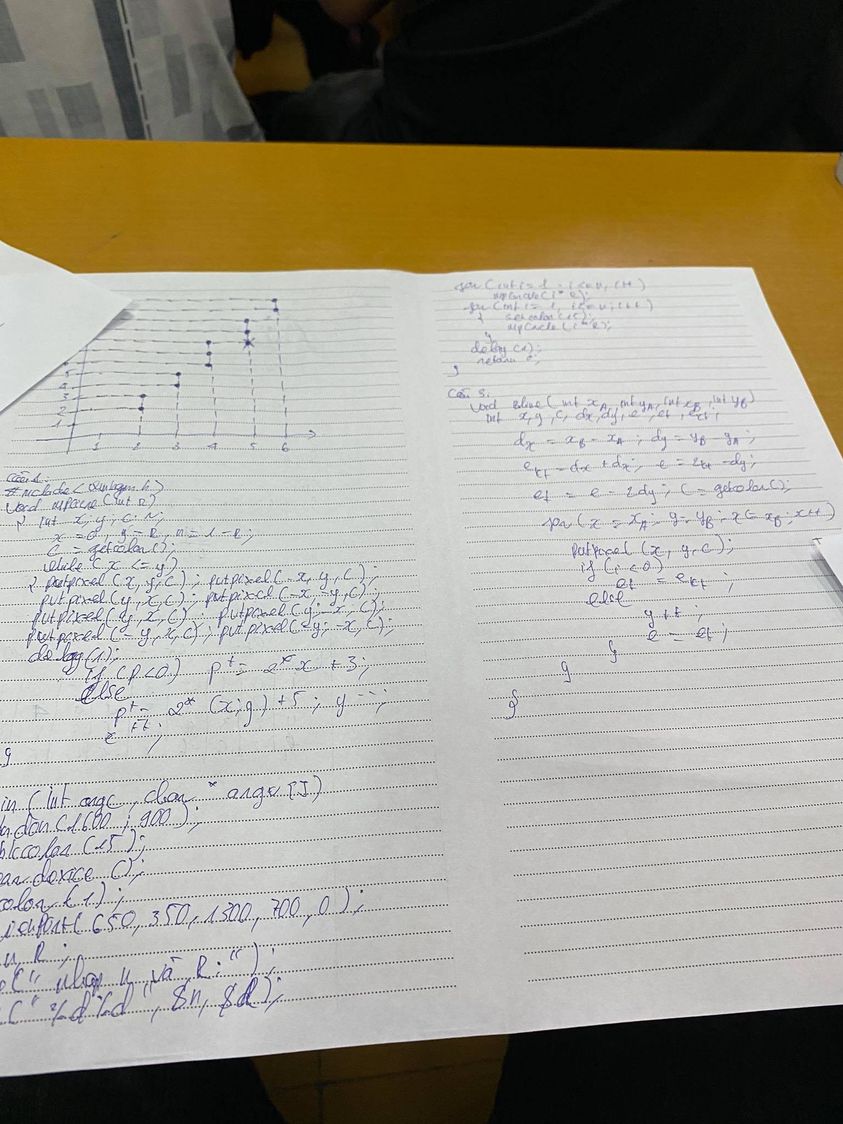 5
4
3
2
1
1 2 3 4 5 6
Câu 1.
#include <winbgim.h>
void mpCircle (int R)
{ int x, y, c,
x = 0, y = R, = 1 - R;
c = getcolor();
while (x <= y)
{ putpixel (x, y, c); putpixel (-x, y, c);
putpixel (y, x, c); putpixel (-x, -y, c);
putpixel ( x, c); putpixel (y, -x, c);
putpixel (-y, x, c); putpixel (-y, -x, c);
delay (1);
if (p<0) p += 2*x + 3;
else
p += 2* (x;y) +5; y --;
x ++;
}
in (int argc, char * argv []
ndow (1600, 900);
kcolor (15);
device ();
color (1);
iewport (650, 350, 1300, 700, 0);
n, R;
(" nhap n và R: ");
(" %d%d ", &n, &R);
for (int i = 1, i <= n, i++)
mpCircle (i* R);
for (int i = 1, i <= n; i++)
{ setcolor (15);
mpCircle (i* R);
}
delay (1);
return 0;
}
Câu 3.
void (int xA, int yA, int xB, int yB)
int x, y, c, dx, dy, e,
dx = xB - xA; dy = yB - yA;
= dx + dx; e = - dy;
= e - 2dy; c = getcolor();
for (x = xA; y = yB; x = xB; x++)
putpixel (x, y, c);
if ( < 0)
else
y ++;
e =
}
}
}